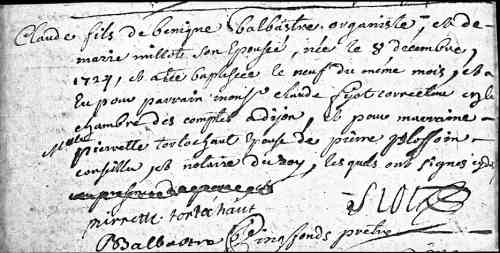 Claude fils de benigne balbastre organiste, et de
marie millot son Epouse, née le 8 decembre,
1724, et a été baptisée le neuf du même mois, et a
Eu pour parrain mons.r claude fyot correcteur en la
chambre des comptes a dijon, et pour marraine
pierrette tortochaut Epouse de pierre
conseiller et notaire du roy, lesquels ont signés
pierrette tortochaut fiot
Balbastre prêtre